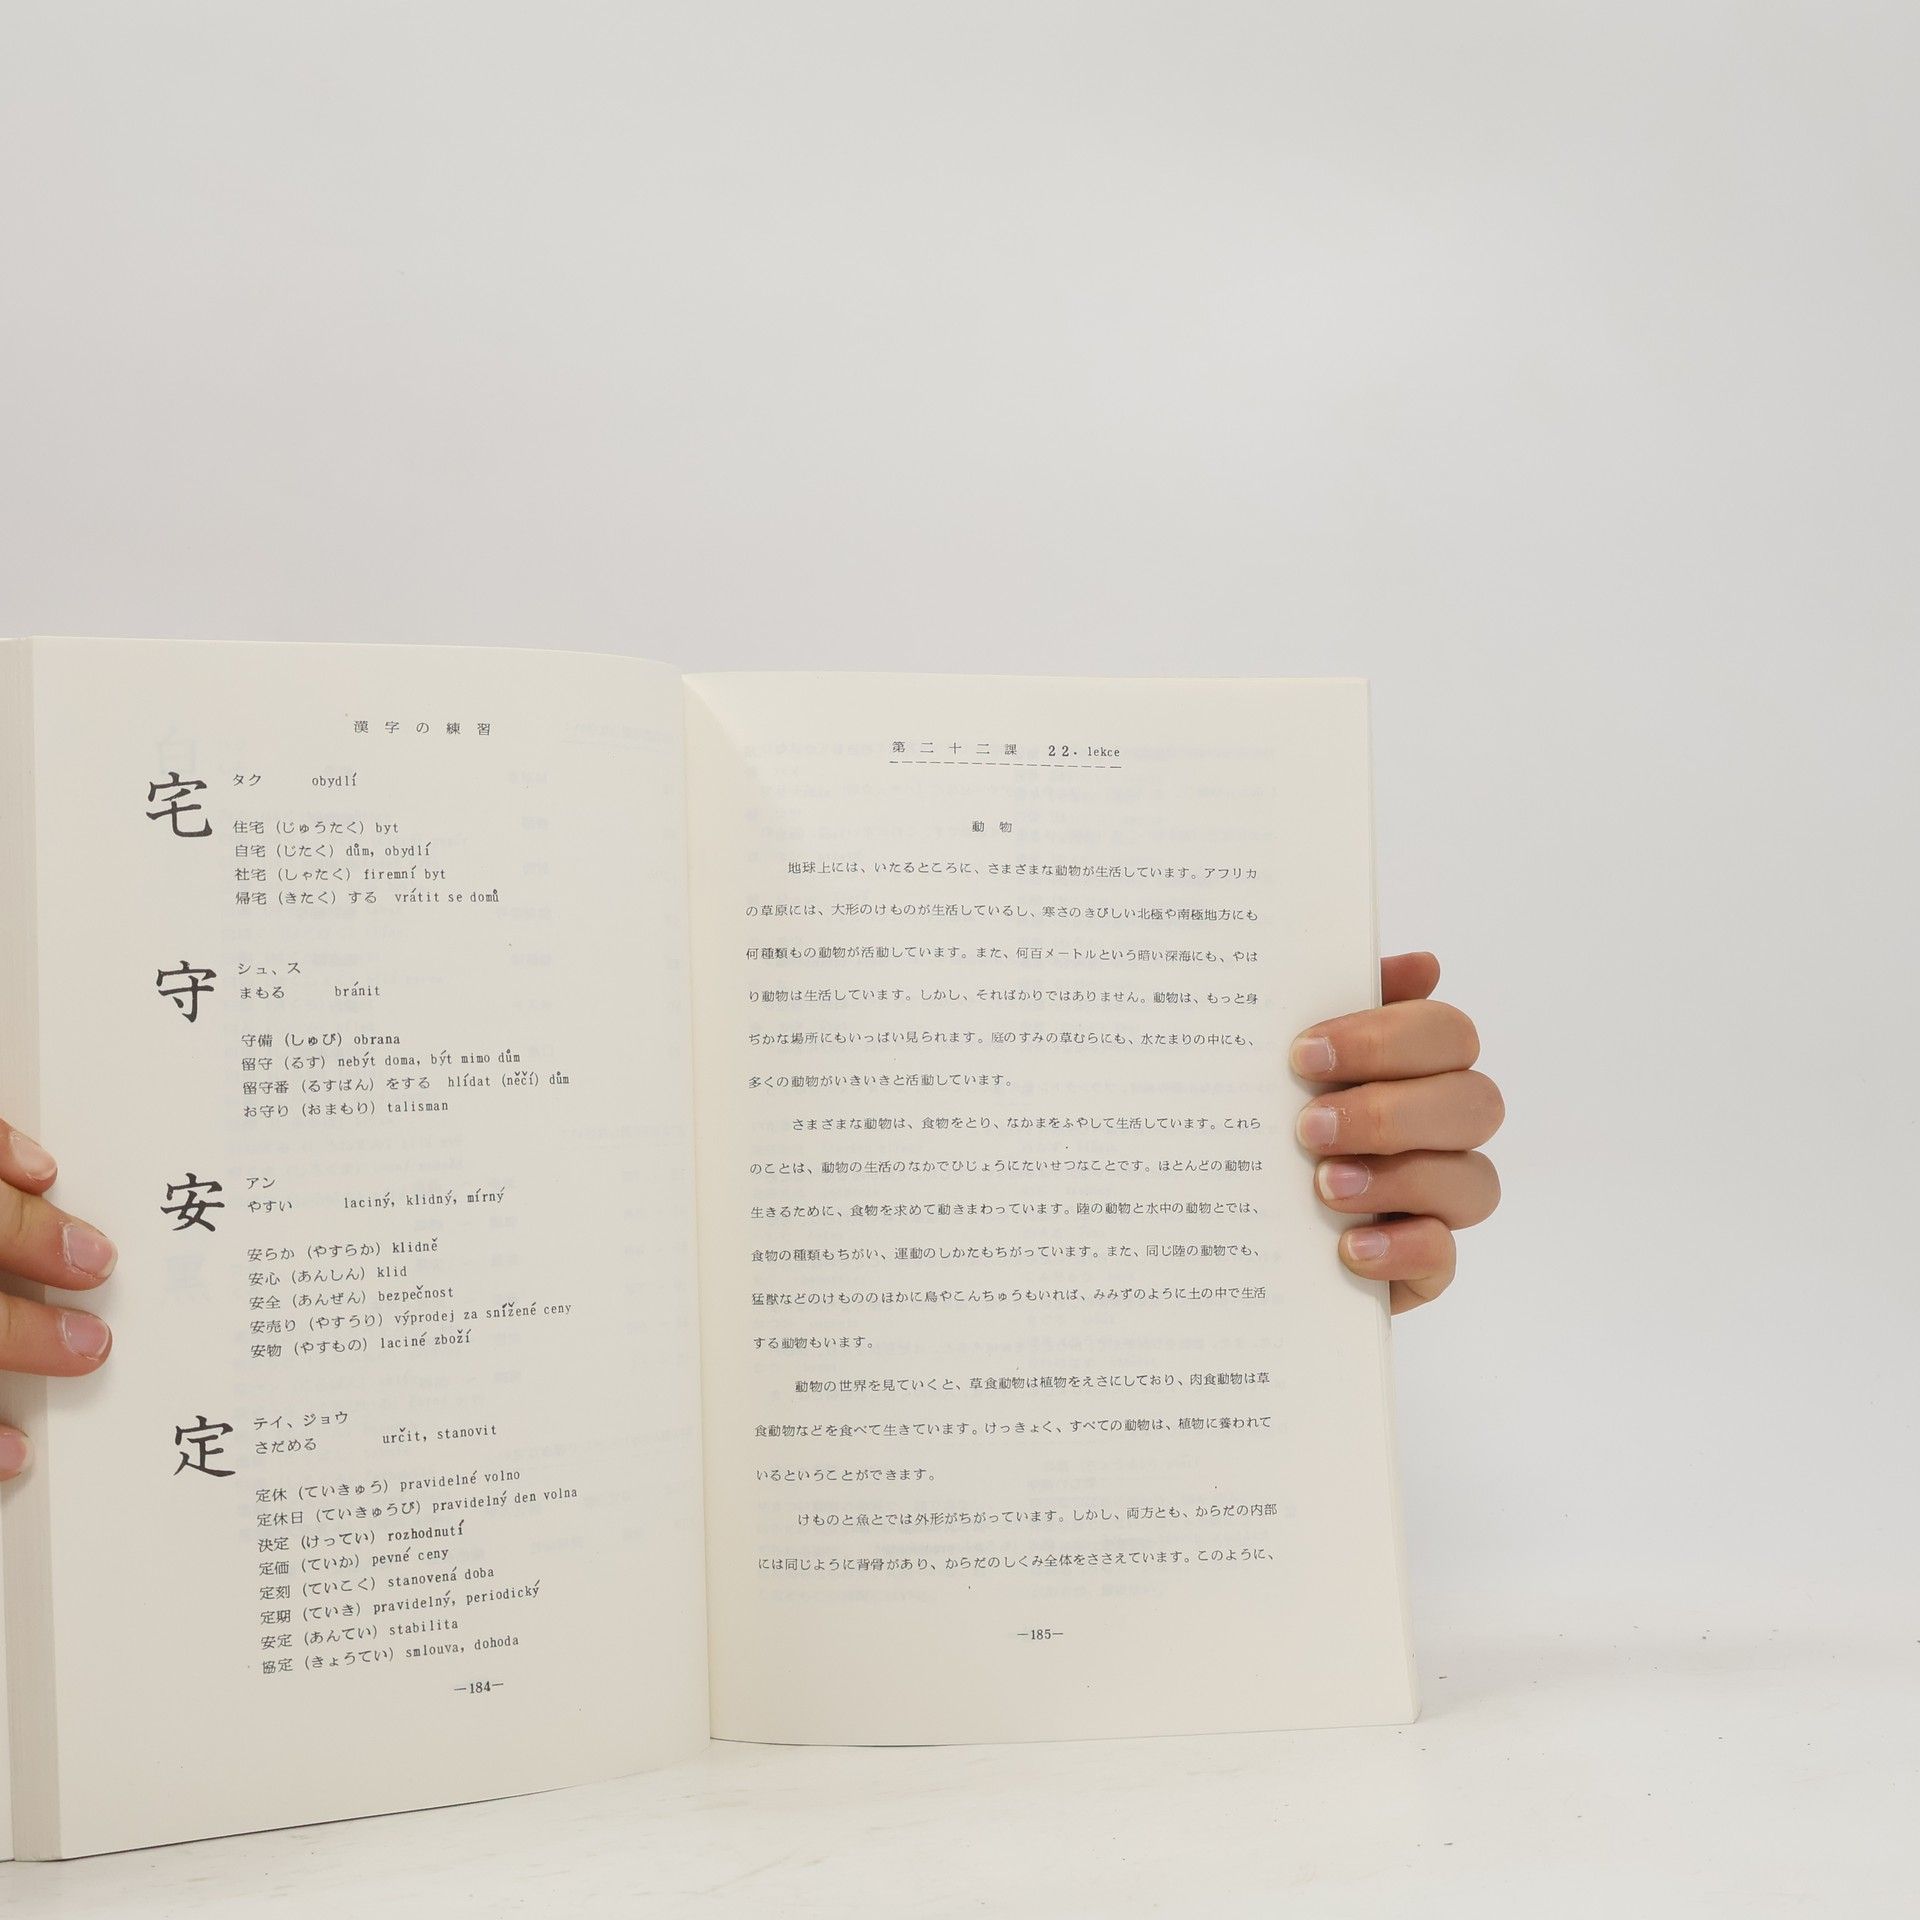 漢字の練習
宅 タク obydlí
住宅（じゅうたく）byt
自宅（じたく）dům, obydlí
社宅（しゃたく）firemní byt
帰宅（きたく）する vrátit se domů
守 シュ、ス
まもる bránit
守備（しゅび）obrana
留守（るす）nebýt doma, být mimo dům
留守番（るすばん）をする hlídat (něčí) dům
お守り（おまもり）talisman
安 アン
やすい laciný, klidný, mírný
安らか（やすらか）klidně
安心（あんしん）klid
安全（あんぜん）bezpečnost
安売り（やすうり）výprodej za snížené ceny
安物（やすもの）laciné zboží
定 テイ、ジョウ
さだめる určit, stanovit
定休（ていきゅう）pravidelné volno
定休日（ていきゅうび）pravidelný den volna
決定（けってい）rozhodnutí
定価（ていか）pevné ceny
定刻（ていこく）stanovená doba
定期（ていき）pravidelný, periodický
安定（あんてい）stabilita
協定（きょうてい）smlouva, dohoda
—184—
第二十二課 22. lekce
動物
地球上には、いたるところに、さまざまな動物が生活しています。アフリカ
の草原には、大形のけものが生活しているし、寒さのきびしい北極や南極地方にも
何種類もの動物が活動しています。また、何百メートルという暗い深海にも、やは
り動物は生活しています。しかし、そればかりではありません。動物は、もっと身
ぢかな場所にもいっぱい見られます。庭のすみの草むらにも、水たまりの中にも、
多くの動物がいきいきと活動しています。
さまざまな動物は、食物をとり、なかまをふやして生活しています。これら
のことは、動物の生活のなかでひじょうにたいせつなことです。ほとんどの動物は
生きるために、食物を求めて動きまわっています。陸の動物と水中の動物とでは、
食物の種類もちがい、運動のしかたもちがっています。また、同じ陸の動物でも、
猛獣などのけもののほかに鳥やこんちゅうもいれば、みみずのように土の中で生活
する動物もいます。
動物の世界を見ていくと、草食動物は植物をえさにしており、肉食動物は草
食動物などを食べて生きています。けっきょく、すべての動物は、植物に養われて
いるということができます。
けものと魚とでは外形がちがっています。しかし、両方とも、からだの内部
には同じように背骨があり、からだのしくみ全体をささえています。このように、
—185—